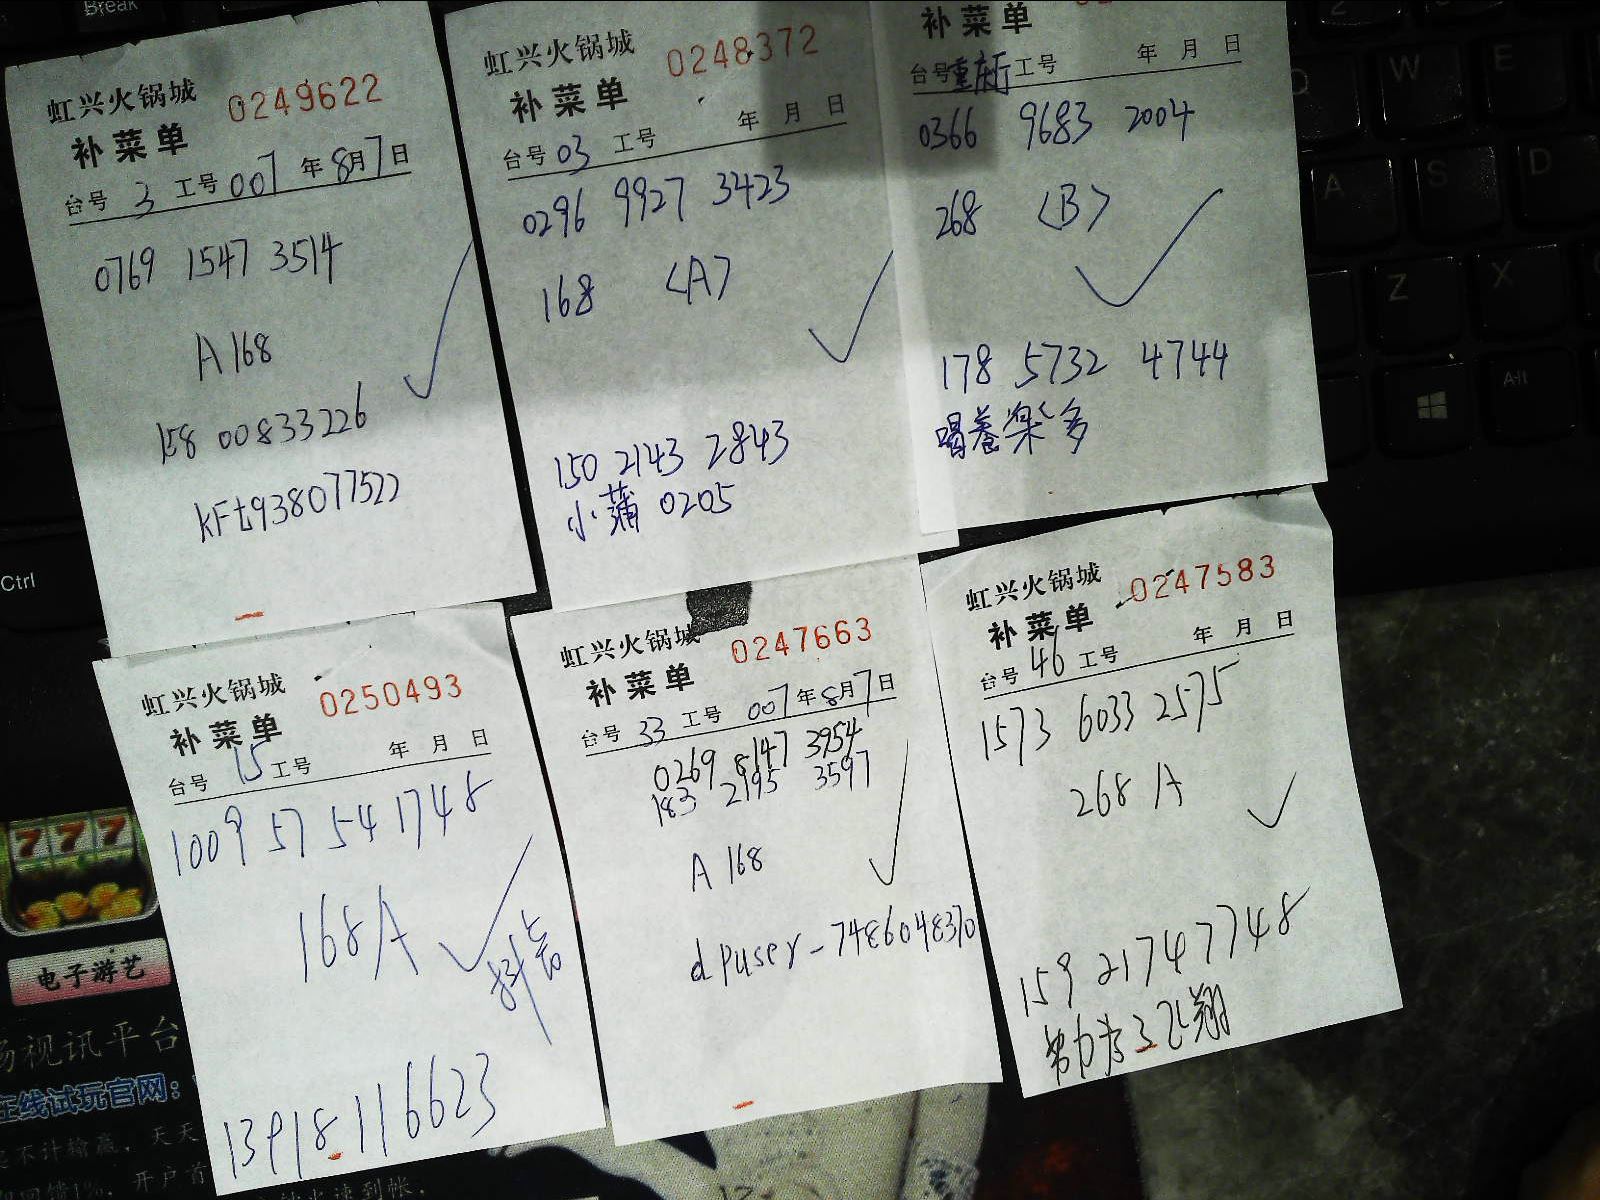 虹兴火锅城 0249622
补菜单
台号 3 工号 007 年 8月7日
0769 1547 3514
A 168
158 00833226
kFt938077522
虹兴火锅城 0248372
补菜单
台号 03 工号 年 月 日
0296 9927 3423
168 <A>
150 2143 2843
小蒲 0205
补菜单
台号 重庆厅 工号 年 月 日
0366 9683 2004
268 <B>
178 5732 4744
喝养楽多
虹兴火锅城 0250493
补菜单
台号 15 工号 年 月 日
1009 57 54 1748
168A
13918116623
虹兴火锅城 0247663
补菜单
台号 33 工号 007年8月7日
0269 8147 3954
183 2195 3597
A 168
dpuser-7486048370
虹兴火锅城 0247583
补菜单
台号 46 工号 年 月 日
1573 6033 2575
268 A
159 21747748
努力为之飞翔
Break
Q W E
A S D
Z X
Alt
Ctrl
777
电子游艺
场视讯平台
在线试玩官网:
不计输赢，天天
开户首
火速到帐.